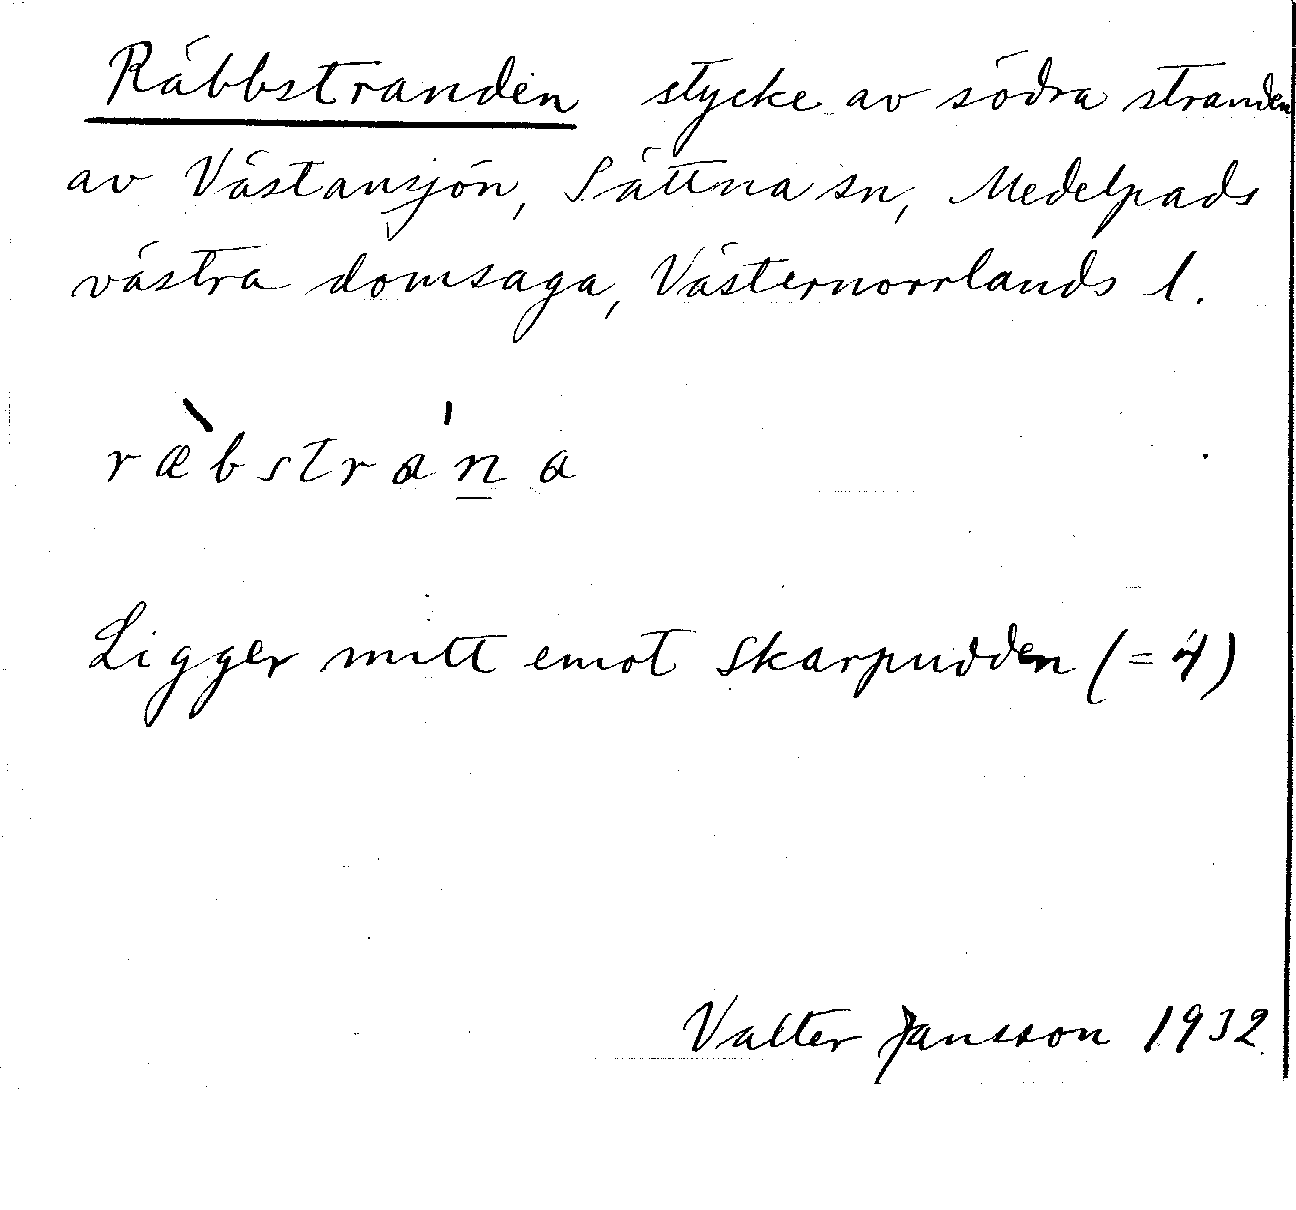 Räbbstranden stycke av södra stranden
av Västansjön, Sättna sn, Medelpads
västra domsaga, Västernorrlands l.
ræ̀bstrána
Ligger mitt emot Skarpudden (= 4)
Valter Jansson 1932